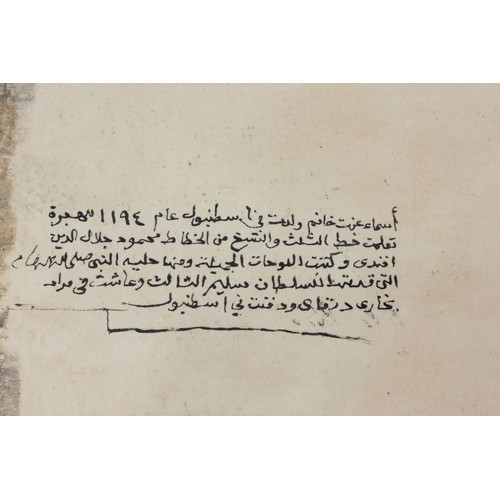 أسماء عزت خانم ولدت في اسطنبول عام ١١٩٤ للهجرة
تعلمت خط الثلث والنسخ من الخطاط محمود جلال الدين
افندي وكتبت اللوحات الجميلة ومنها حلية النبي صلى الله عليه وسلم
التي قدمتها للسلطان سليم الثالث وعاشت في مراد
بخاري ودفنت في اسطنبول